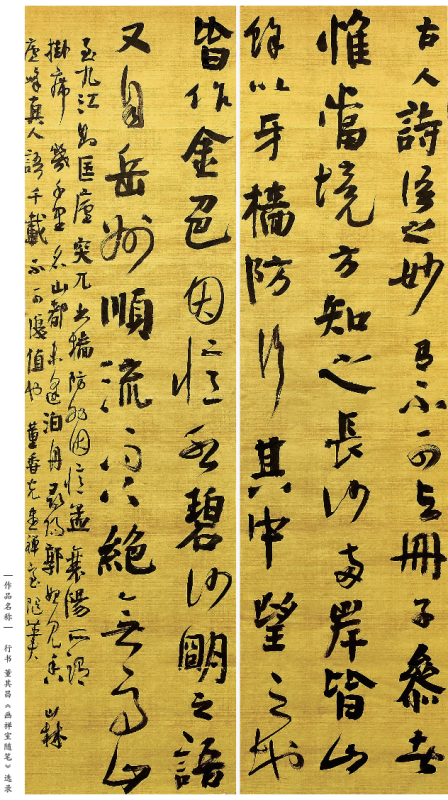 古人詩语之妙有不可与册子參者
惟當境方知之長沙两岸皆山
餘以牙檣防行其中望之地
皆作金色因憶水碧沙明之語
又自岳州順流而下絶無高山
至九江則匡廬突兀出檣防外因憶孟襄陽所謂
掛席幾千里名山都未逢泊舟尋陽郭始見香
廬峰真人語千載不可復值也 董香光画禪室随筆 山林
—作品名称—
行书 董其昌《画禅室随笔》选录